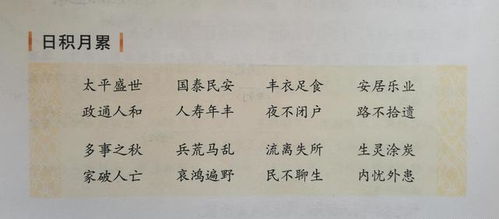 日积月累
太平盛世 国泰民安 丰衣足食 安居乐业
政通人和 人寿年丰 夜不闭户 路不拾遗
多事之秋 兵荒马乱 流离失所 生灵涂炭
家破人亡 哀鸿遍野 民不聊生 内忧外患